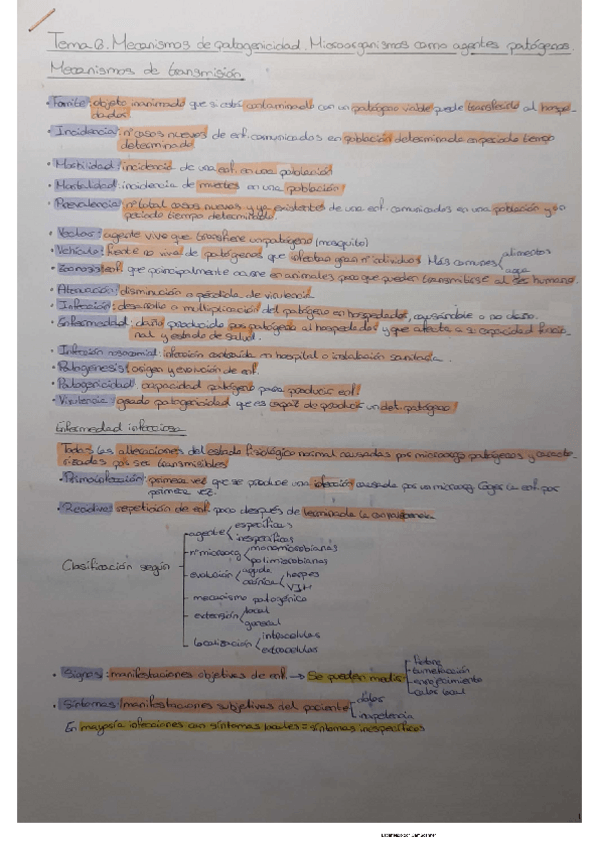 Tema 6. Mecanismos de patogenicidad. Microorganismos como agentes patógenos.
Mecanismos de transmisión
• Fomite: objeto inanimado que si está contaminado con un patógeno viable puede transferirlo al hospe-
dador
• Incidencia: nº casos nuevos de enf. comunicados en población determinada en período tiempo
determinado
• Morbilidad: incidencia de una enf. en una población
• Mortalidad: incidencia de muertes en una población
• Prevalencia: nº total casos nuevos y ya existentes de una enf. comunicados en una población y en
período tiempo determinado.
• Vector: agente vivo que transfiere un patógeno (mosquito)
• Vehículo: fuente no viva de patógenos que infectan gran nº individuos Más comunes alimentos
agua
• Zoonosis: enf. que principalmente ocurre en animales pero que pueden transmitirse al ser humano.
• Atenuación: disminución o pérdida de virulencia
• Infección: desarrollo o multiplicación del patógeno en hospedador, causándole o no daño.
• Enfermedad: daño producido por patógeno al hospedador y que afecta a su capacidad funcio-
nal y estado de salud.
• Infección nosocomial: infección contraída en hospital o instalación sanitaria.
• Patogénesis: origen y evolución de enf.
• Patogenicidad: capacidad patógeno para producir enf.
• Virulencia: grado patogenicidad que es capaz de producir un det. patógeno
Enfermedad infecciosa
Todas las alteraciones del estado fisiológico normal causadas por microorg. patógenos y caracte-
rizadas por ser transmisibles
• Primoinfección: primera vez que se produce una infección causada por un microorg. Coger la enf. por
primera vez.
• Recidiva: repetición de enf. poco después de terminada la convalecencia
Clasificación según
agente específicos
inespecíficos
nº microorg monomicrobianas
polimicrobianas
evolución aguda
crónica herpes
VIH
mecanismo patogénico
extensión local
general
localización intracelular
extracelular
• Signos: manifestaciones objetivas de enf. → Se pueden medir fiebre
tumefacción
enrojecimiento
calor local
• Síntomas: manifestaciones subjetivas del paciente dolor
inapetencia
En mayoría infecciones con síntomas locales = síntomas inespecíficos
1